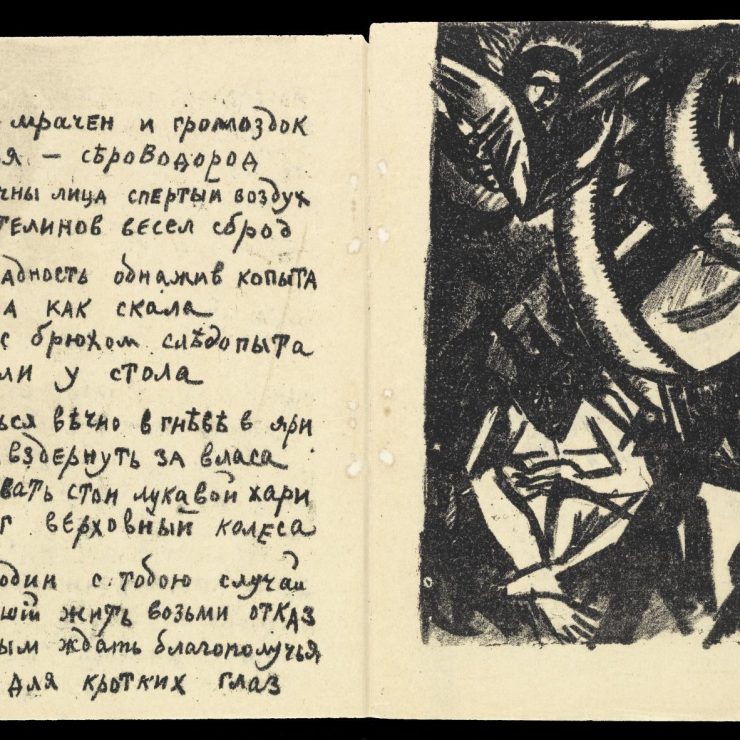 мрачен и громоздок
я — сѣроводород
чны лица спертый воздух
телинов весел сброд
адность обнажив копыта
а как скала
с брюхом слѣдопыта
ли у стола
ься вѣчно в гнѣвѣ в яри
вздернуть за власа
вать стон лукавой хари
г верховный колеса
один с тобою случай
шій жить возьми отказ
ым ждать благополучья
для кротких глаз